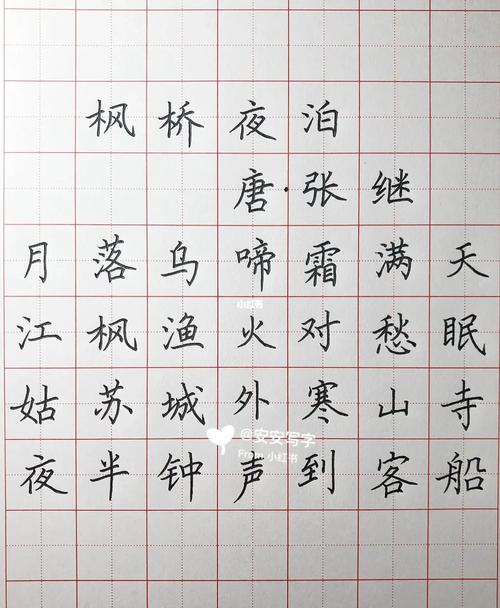 枫桥夜泊
唐·张继
月落乌啼霜满天
小红书
江枫渔火对愁眠
姑苏城外寒山寺
@安安写字
From 小红书
夜半钟声到客船